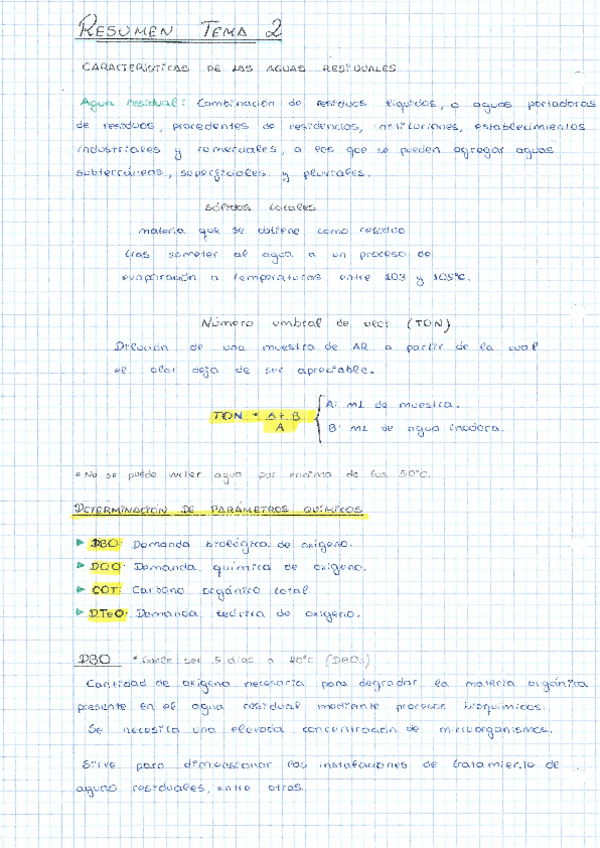 RESUMEN TEMA 2
CARACTERÍSTICAS DE LAS AGUAS RESIDUALES
Agua residual: Combinación de residuos líquidos, o aguas portadoras
de residuos, procedentes de residencias, instituciones, establecimientos
industriales y comerciales, a los que se pueden agregar aguas
subterráneas, superficiales y pluviales.
sólidos totales
materia que se obtiene como residuo
tras someter al agua a un proceso de
evaporación a temperaturas entre 103 y 105ºC.
Número umbral de olor (TON)
Dilución de una muestra de AR a partir de la cual
el olor deja de ser apreciable.
TON = A+B
A
A: ml de muestra.
B: ml de agua inodora.
* No se puede verter agua por encima de los 50ºC.
DETERMINACIÓN DE PARÁMETROS QUÍMICOS
DBO: Demanda biológica de oxígeno.
DQO: Demanda química de oxígeno.
COT: Carbono orgánico total
DTeO: Demanda teórica de oxígeno.
DBO * suele ser 5 días a 20ºC (DBO₅)
Cantidad de oxígeno necesaria para degradar la materia orgánica
presente en el agua residual mediante procesos bioquímicos.
Se necesita una elevada concentración de microorganismos.
Sirve para dimensionar las instalaciones de tratamiento de
aguas residuales, entre otras.